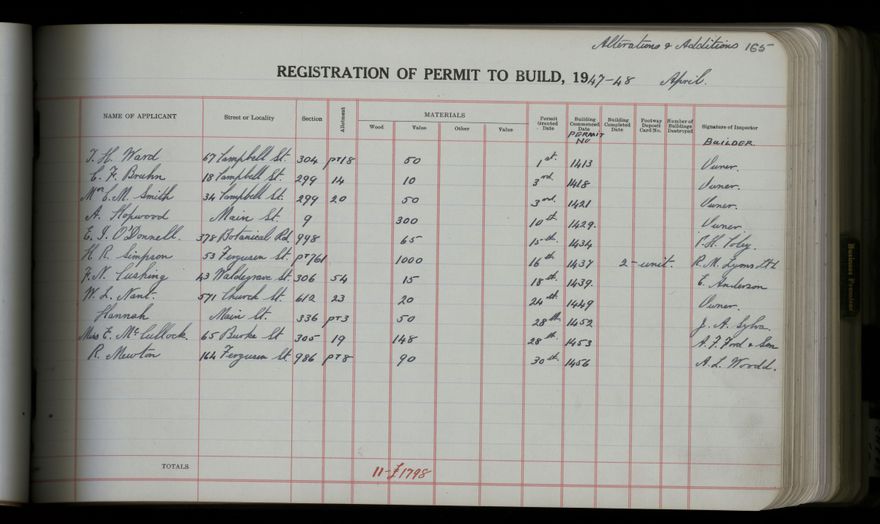 Alterations & Additions 165
REGISTRATION OF PERMIT TO BUILD, 1947-48 April.
NAME OF APPLICANT Street or Locality Section Allotment MATERIALS Wood Value Other Value Permit Granted Date Building Commenced Date PERMIT NO Building Completed Date Footway Deposit Card No. Number of Buildings Destroyed Signature of Inspector BUILDER
T. H. Ward 67 Campbell St. 304 PT18 50 1st. 1413 Owner.
E. F. Bruhn 18 Campbell St. 299 14 10 3rd. 1418 Owner.
Mrs C. M. Smith 34 Campbell St. 299 20 50 3rd. 1421 Owner.
A. Hopwood Main St. 9 300 10th 1429. Owner.
E. J. O'Donnell. 378 Botanical Rd. 998 65 15th. 1434 P. H. Foley.
H. R. Simpson 53 Ferguson St. PT761 1000 16th 1437 2-unit. R. M. Lyms Ltd
F. N. Cushing 43 Waldegrave St. 306 54 15 18th. 1439. E. Anderson
W. L. Nant. 571 Church St. 612 23 20 24th 1449 Owner.
Hannah Main St. 336 PT3 50 28th 1452 J. A. Sylva.
Miss E. McCullock. 65 Burke St 305 19 148 28th. 1453 A. J. Ford & Son
R. Mewton 164 Ferguson St 986 PT8 90 30th. 1456 A. L. Woodd.
TOTALS 11-£1798
Business Premises